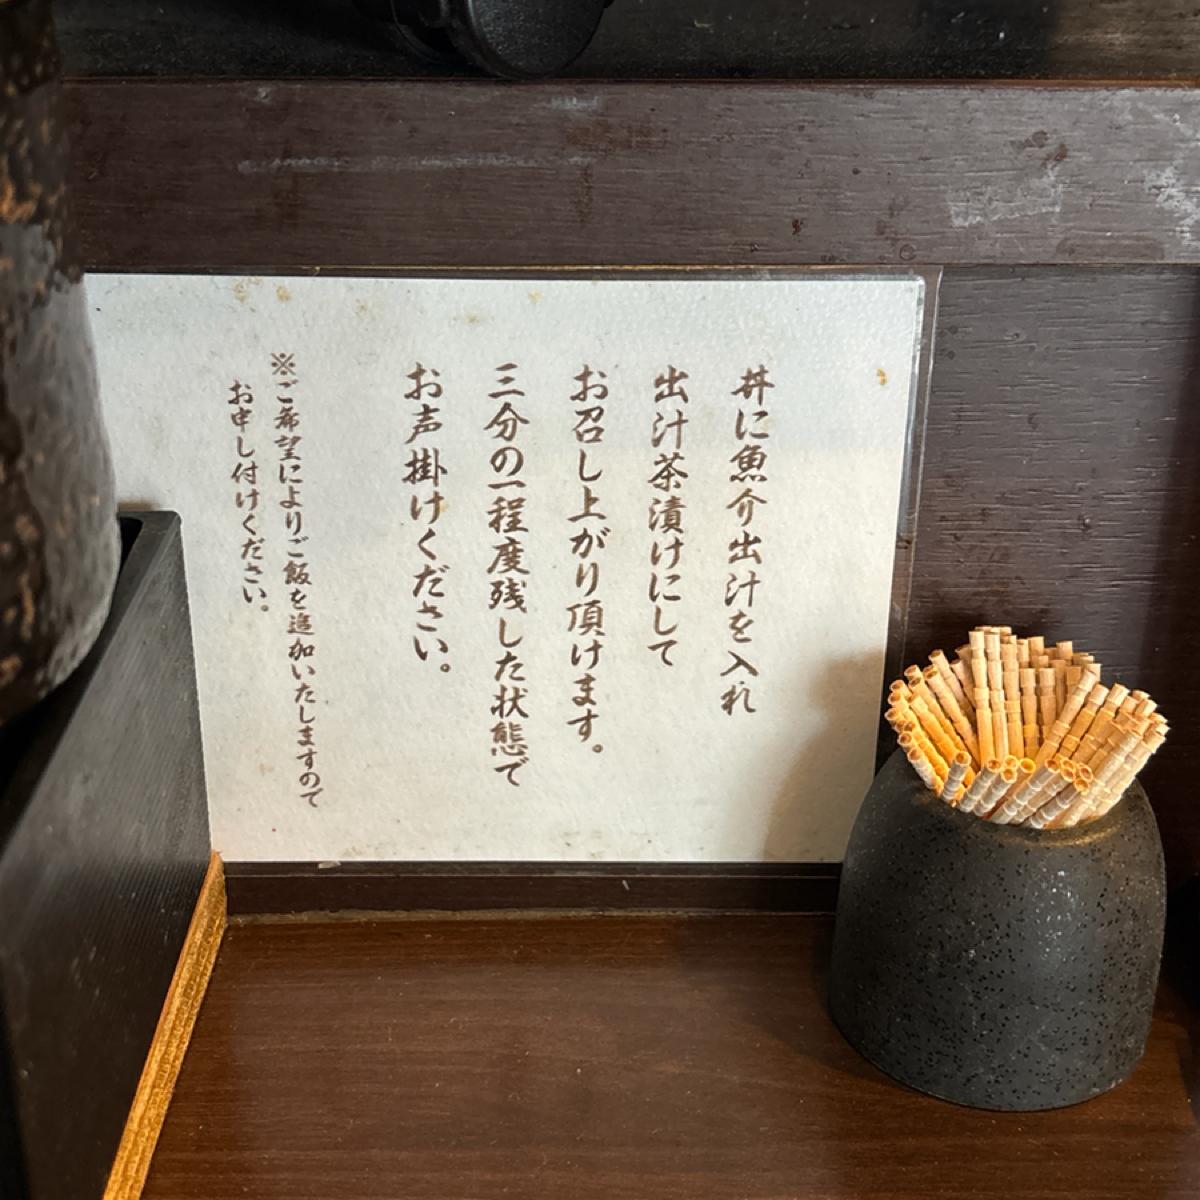 丼に魚介出汁を入れ
出汁茶漬けにして
お召し上がり頂けます。
三分の一程度残した状態で
お声掛けください。
※ご希望によりご飯を追加いたしますので
お申し付けください。